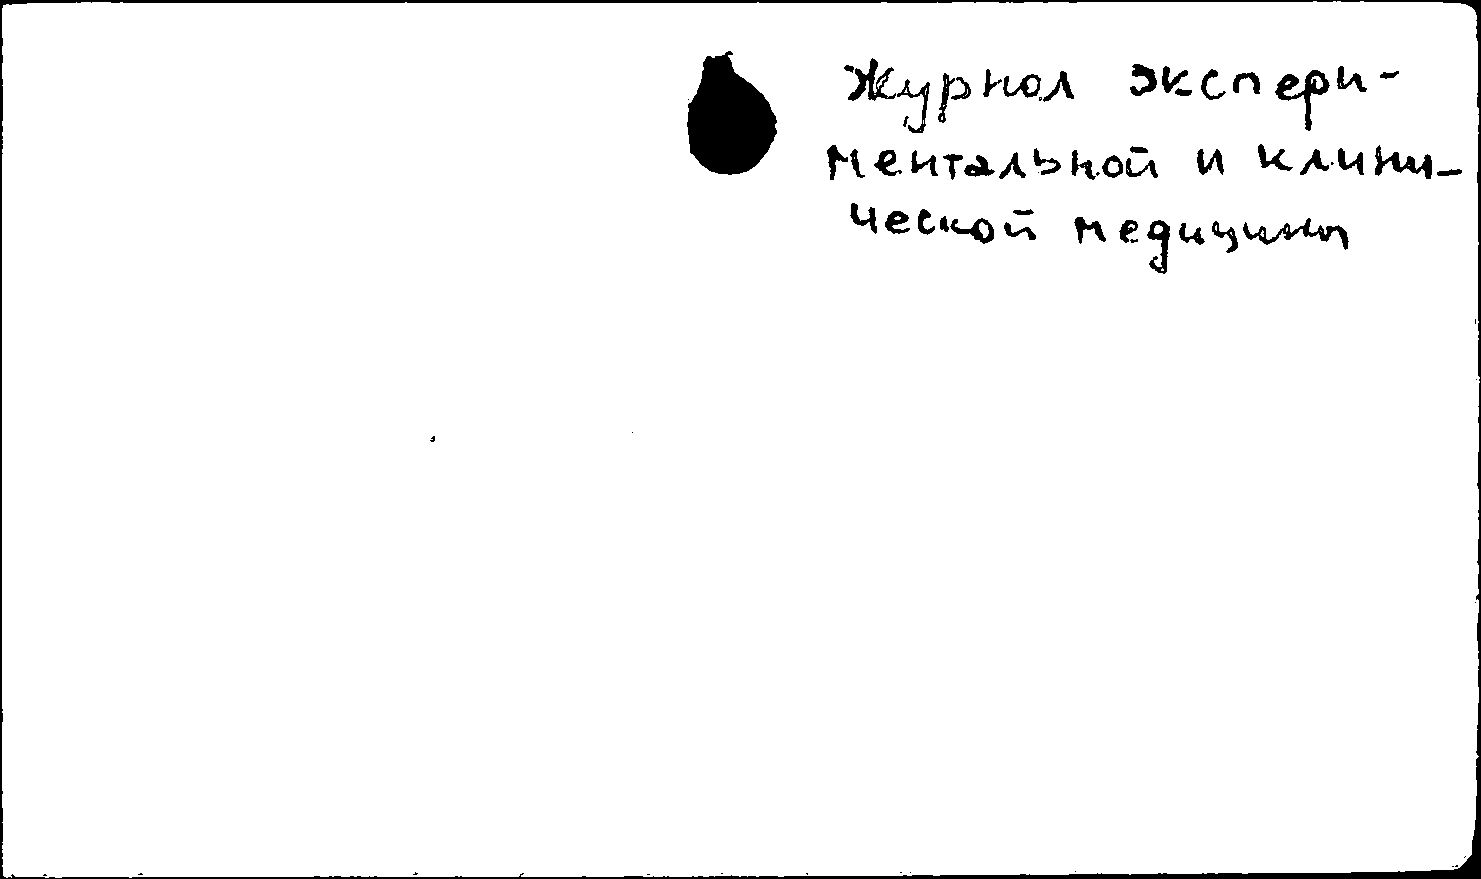 Журнал экспери-
ментальной и клини-
ческой медицины